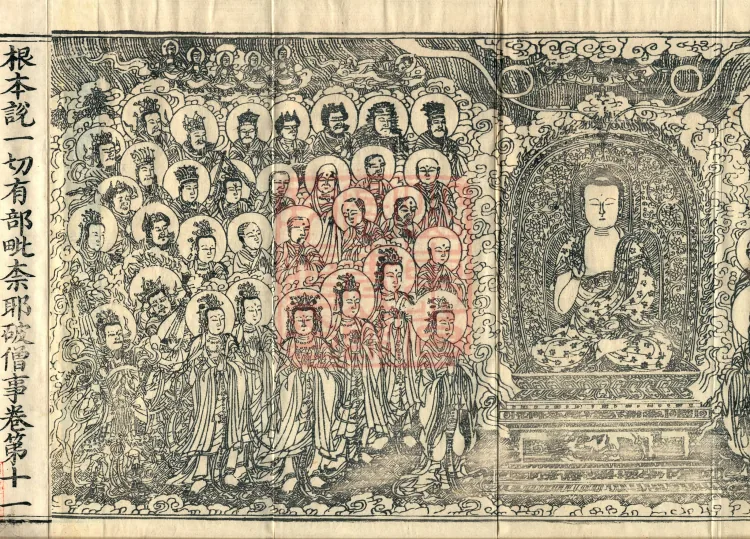 根本說一切有部毗柰耶破僧事卷第十一